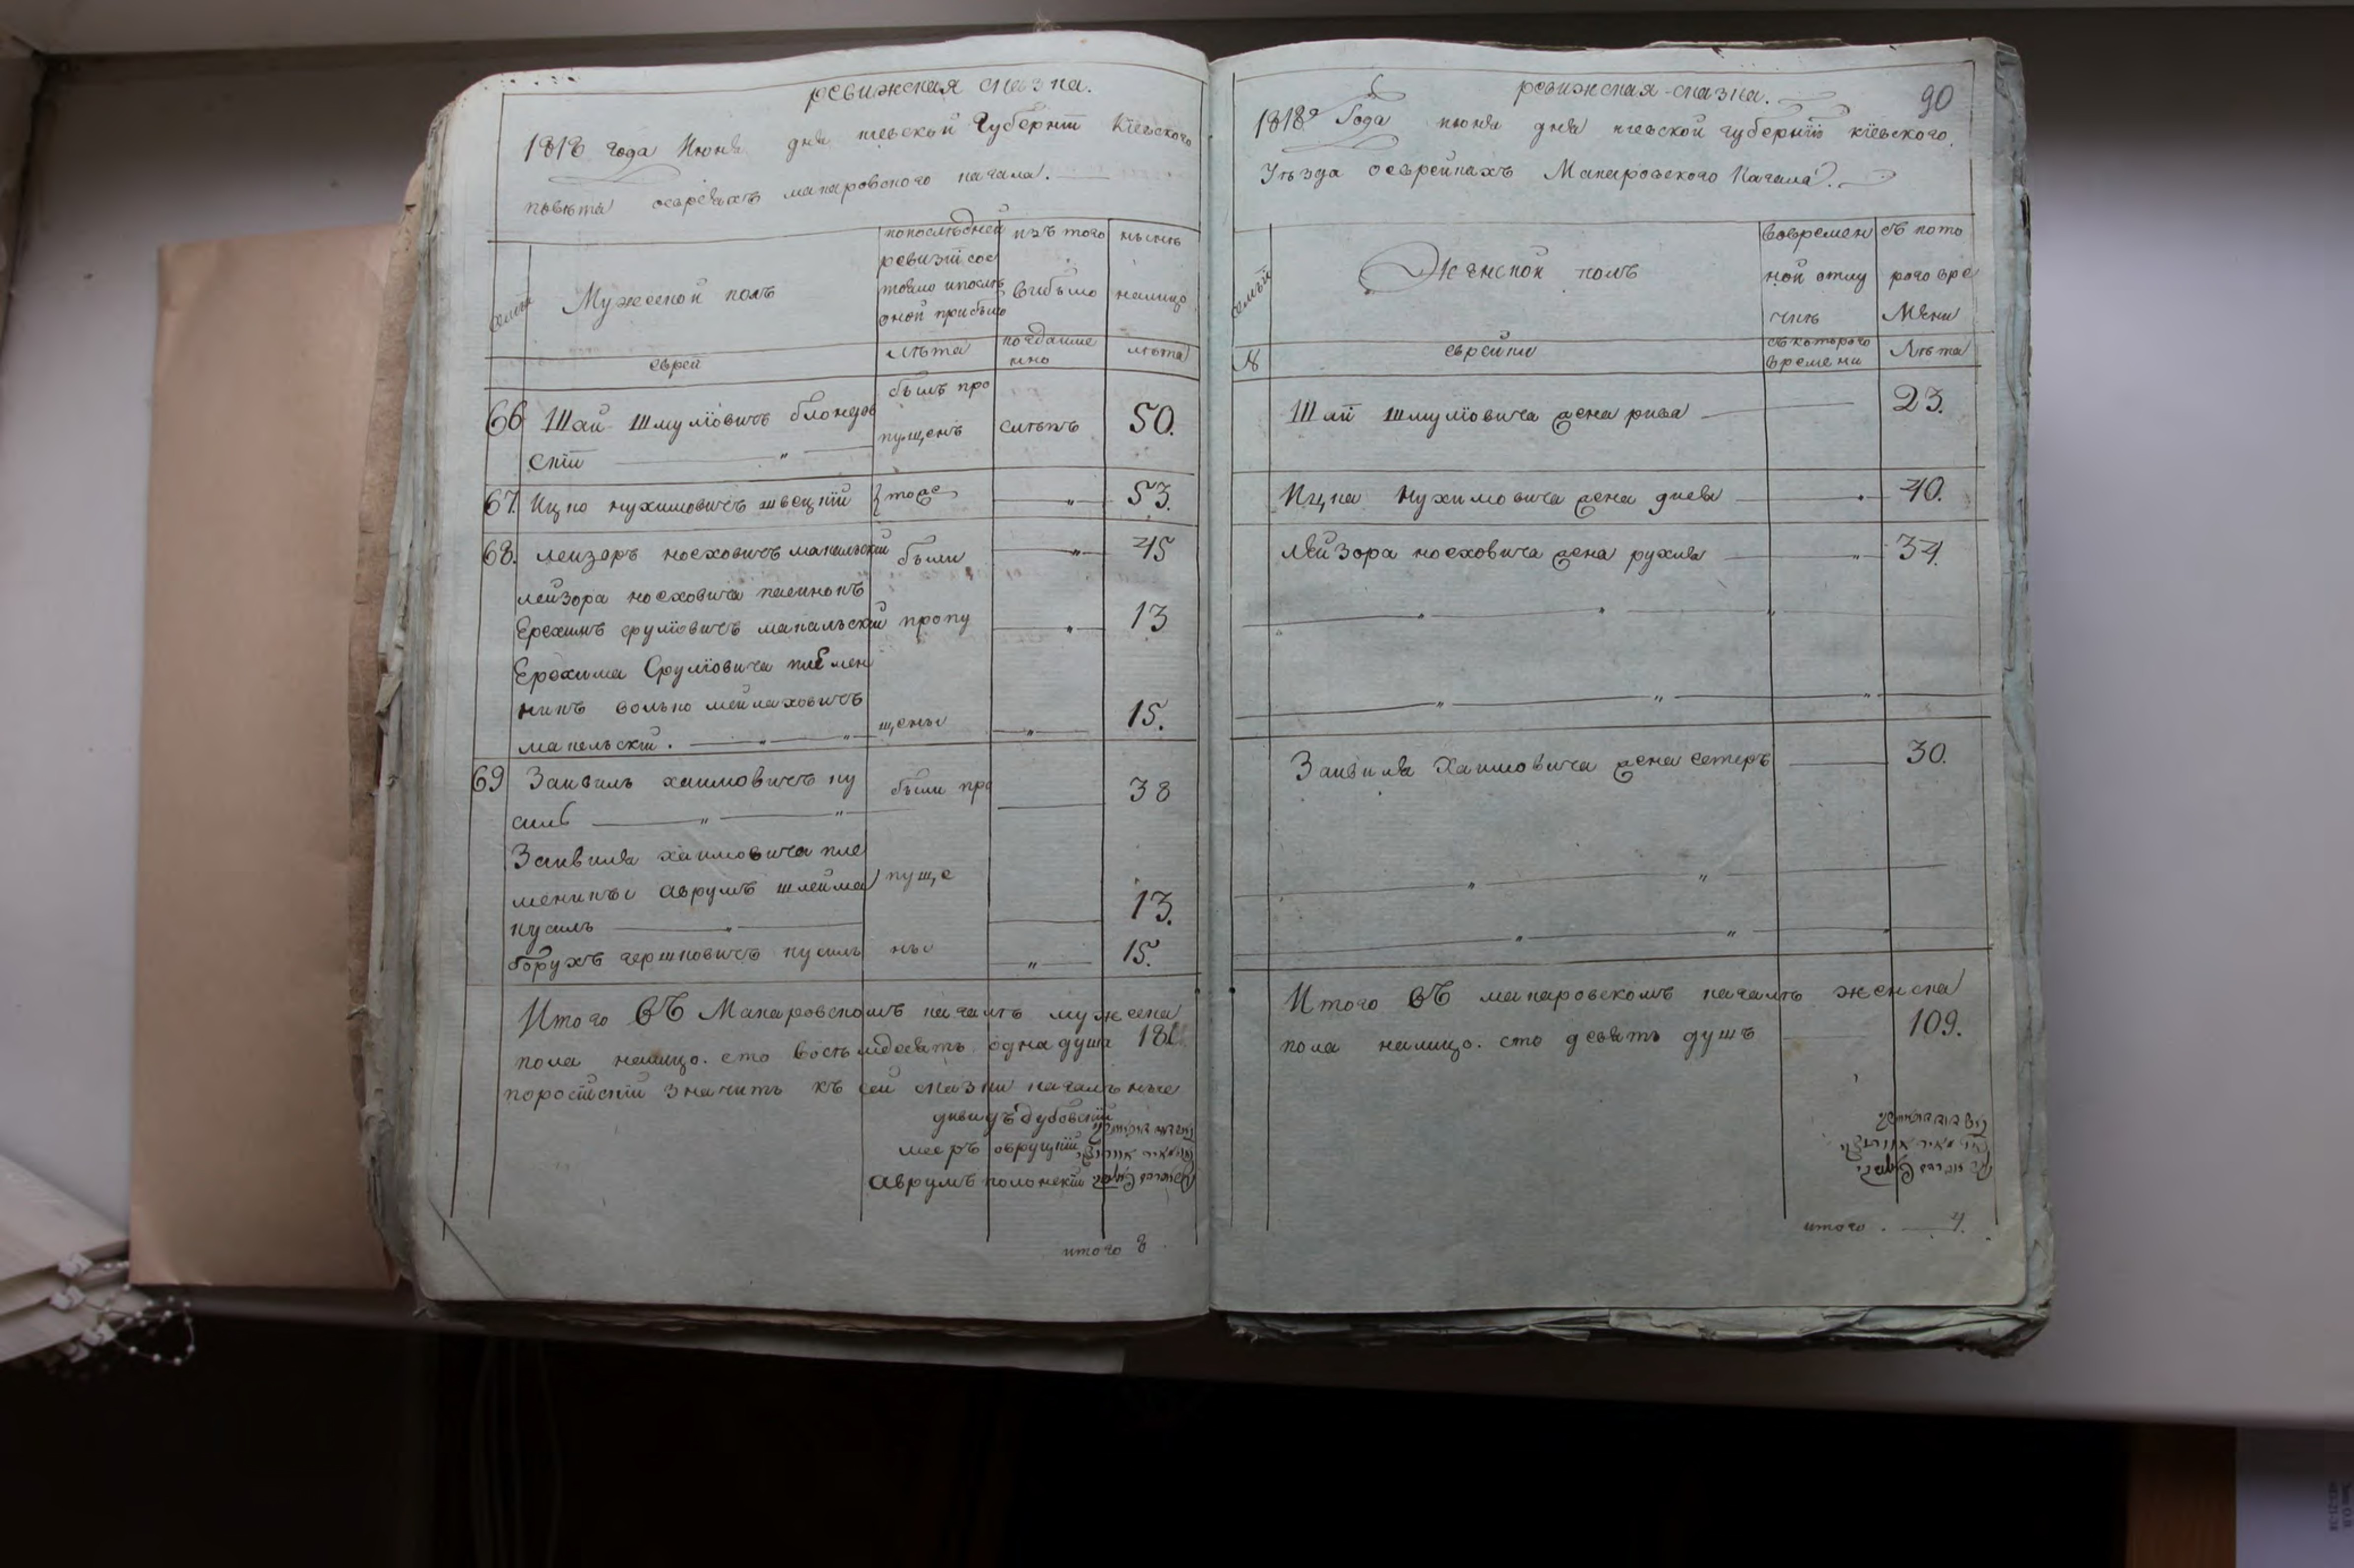 ревижская сказка.
1818 года Июня дня киевской Губернїи Кїевского
повѣта оевреяхъ макаровского кагала.
семьи
Мужеской полъ
попослѣдней
ревизїи сос
тояло ипослѣ
оной прибыло
изъ того
выбыло
нынѣ
налицо
еврей
лѣта
когдаиме
нно
лѣта
66 Шаи Шмулїовичъ блондов
скїи
былъ про
пущенъ
слѣпъ
50.
67. Ицко нухимовичъ швецкїй
тоже
53.
68. лейзоръ носховичъ макальскїй
были
45
лейзора носховича племнокъ
Ерохимъ срулїовичъ макальскїй пропу
13
Ерохима Срулїовича племен
никъ волько мейлаховичъ
макельскїй.
щены
15.
69 Заивилъ хаимовичъ ку
силъ
были про
38
Заивиля хаимовича пле
менники аврумъ шлейма
кусилъ
пуще
13.
борухъ гершковичъ кусилъ
ны
15.
Итого въ Макаровскомъ кагалѣ мужеска
пола налицо. сто восьмдесятъ одна душа 181
поросїйскїи значитъ къ сей сказки кагальные
дивидъ дубовскїй
меръ овруцкїй
аврумъ полонскїй
итого 8
ревижская сказка.
90
1818го Года июня дня киевской губернїи кїевского.
Уѣзда оеврейкахъ Макаровского Кагала.
семьи
Женской полъ
вовремен
ной отлу
чкѣ
съ кото
рого вре
мени
№
еврейки
съ которого
времени
Лѣта
Шаи шмулїовича жена рива
23.
Ицка Нухимовича жена двеза
40.
Лейзора носховича жена рухля
34.
Заивиля Хаимовича жена естеръ
30.
Итого въ макаровскомъ кагалѣ женска
пола налицо. сто девять душъ
109.
итого. 4.